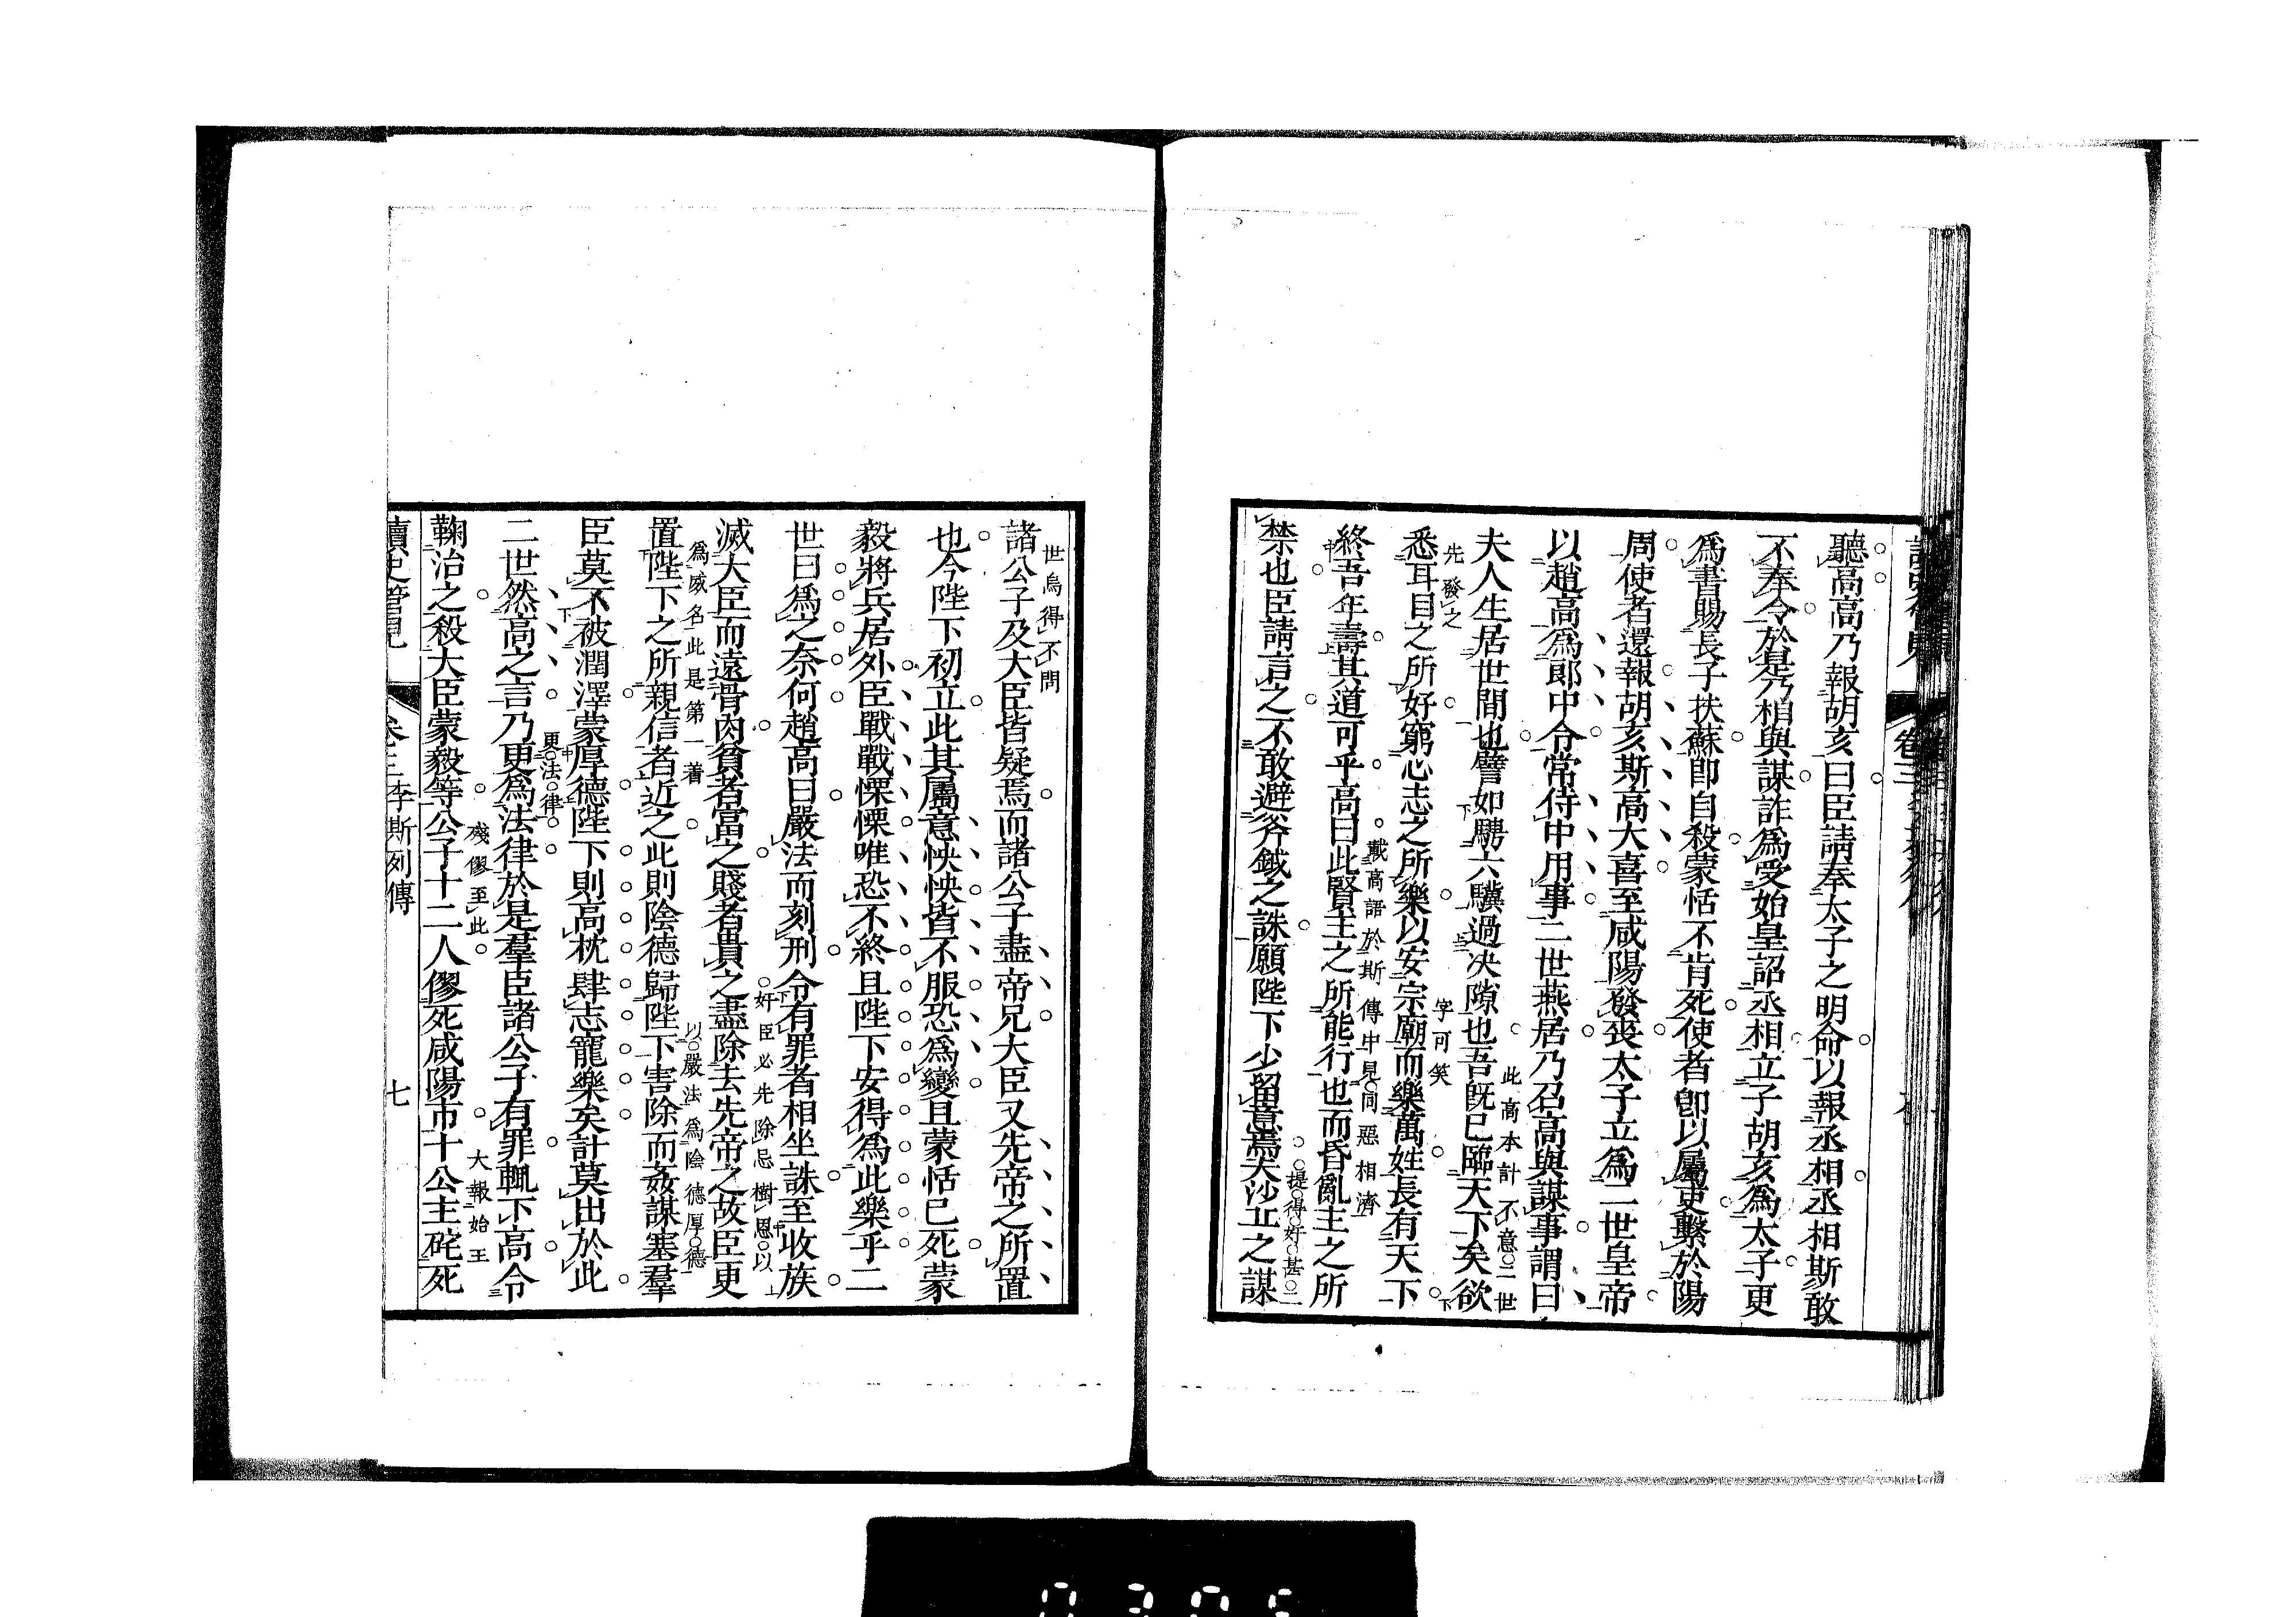 聽高高乃報胡亥曰臣請奉太子之明命以報丞相丞相斯敢
不奉令於是乃相與謀詐爲受始皇詔丞相立子胡亥爲太子更
爲書賜長子扶蘇卽自殺蒙恬不肯死使者卽以屬吏繫於陽
周使者還報胡亥斯高大喜至咸陽發喪太子立爲二世皇帝
以趙高爲郎中令常侍中用事二世燕居乃召高與謀事謂曰
此高本計不意二世
夫人生居世間也譬如騁六驥過决隙也吾旣已臨天下矣欲
先發之
字可笑
悉耳目之所好窮心志之所樂以安宗廟而樂萬姓長有天下
戴高語於斯傳中見同惡相濟
終吾年壽其道可乎高曰此賢主之所能行也而昏亂主之所
提得好甚二
禁也臣請言之不敢避斧鉞之誅願陛下少留意焉夫沙丘之謀
世烏得不問
諸公子及大臣皆疑焉而諸公子盡帝兄大臣又先帝之所置
也今陛下初立此其屬意怏怏皆不服恐爲變且蒙恬已死蒙
毅將兵居外臣戰戰慄慄唯恐不終且陛下安得爲此樂乎二
世曰爲之奈何趙高曰嚴法而刻刑令有罪者相坐誅至收族
奸臣必先除忌樹恩以
滅大臣而遠骨肉貧者富之賤者貴之盡除去先帝之故臣更
爲威名此是第一著
以嚴法爲陰德厚德
置陛下之所親信者近之此則陰德歸陛下害除而姦謀塞羣
臣莫不被潤澤蒙厚德陛下則高枕肆志寵樂矣計莫出於此
更法律
二世然高之言乃更爲法律於是羣臣諸公子有罪輒下高令
殘僇至此
大報始王
鞠治之殺大臣蒙毅等公子十二人僇死咸陽市十公主矺死
讀史管見
卷三李斯列傳
七